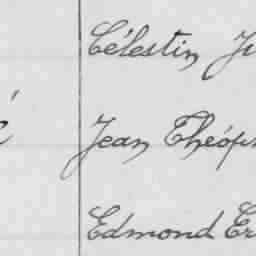 Célestin Ju
Jean Théop
Edmond Er